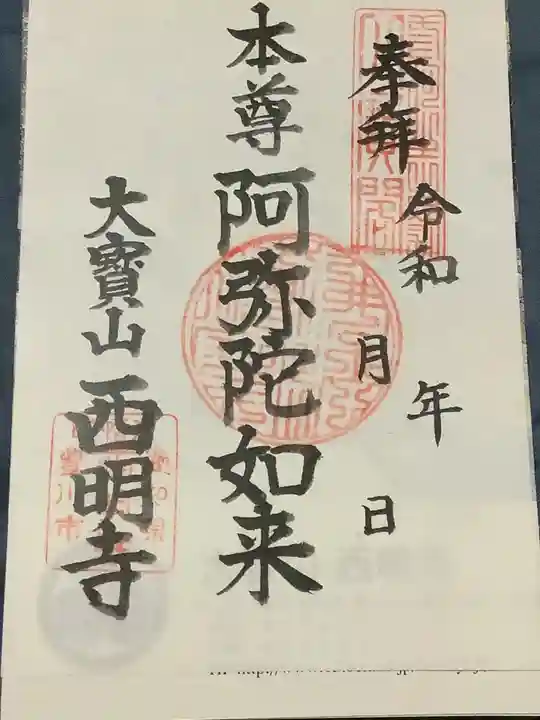 奉拜
令和 年
月 日
本尊 阿弥陀如来
大寳山 西明寺
愛知県
豊川市